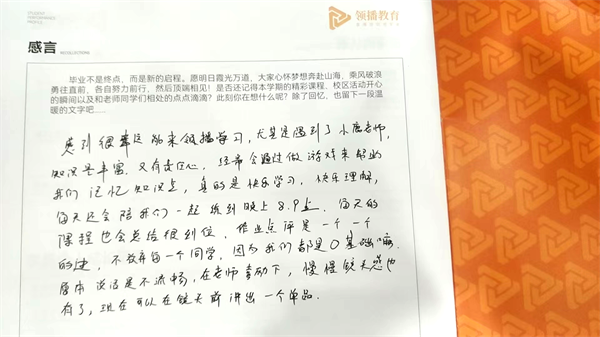 领播教育
感言
毕业不是终点，而是新的启程。愿明日霞光万道，大家心怀梦想奔赴山海，乘风破浪
勇往直前，各自努力前行，然后顶端相见！是否还记得本学期的精彩课程、校区活动开心
的瞬间以及和老师同学们相处的点点滴滴？此刻你在想什么呢？除了回忆，也留下一段温
暖的文字吧......
感到很幸运能来领播学习，尤其是遇到了小唐老师，
知识量丰富，又有责任心，经常会通过做游戏来帮助
我们记忆知识点，真的是快乐学习，快乐理解，
每天还会陪我们一起练到晚上8.9点，每天的
课程也会总结很到位，作业点评是一个一个
的建，不放弃每一个同学，因为我们都是0基础嘛
原本说话是不流畅，在老师带动下，慢慢镜头感也
有了，现在可以在镜头前讲出一个单品.